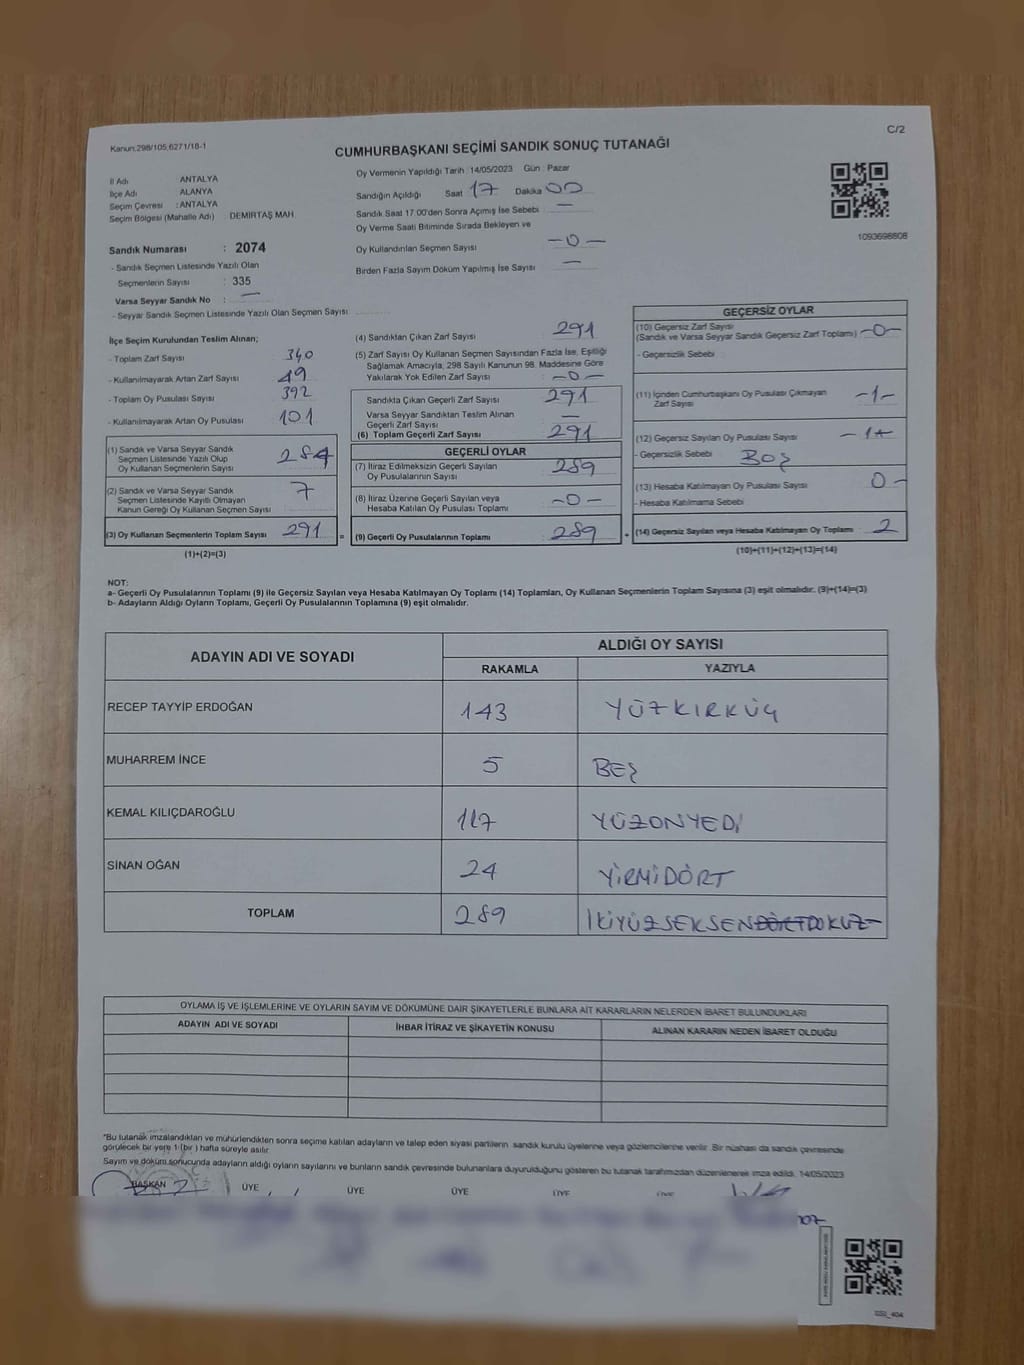 Kanun:298/105,6271/18-1
C/2
CUMHURBAŞKANI SEÇİMİ SANDIK SONUÇ TUTANAĞI
İl Adı : ANTALYA
İlçe Adı : ALANYA
Seçim Çevresi : ANTALYA
Seçim Bölgesi (Mahalle Adı) : DEMİRTAŞ MAH.
Sandık Numarası : 2074
- Sandık Seçmen Listesinde Yazılı Olan
Seçmenlerin Sayısı : 335
Varsa Seyyar Sandık No : —
- Seyyar Sandık Seçmen Listesinde Yazılı Olan Seçmen Sayısı
Oy Vermenin Yapıldığı Tarih : 14/05/2023 Gün : Pazar
Sandığın Açıldığı Saat 17 Dakika 00
Sandık Saat 17:00'den Sonra Açımış İse Sebebi —
Oy Verme Saati Bitiminde Sırada Bekleyen ve
Oy Kullandırılan Seçmen Sayısı —0—
Birden Fazla Sayım Döküm Yapılmış İse Sayısı —
1093698808
İlçe Seçim Kurulundan Teslim Alınan;
- Toplam Zarf Sayısı 340
- Kullanılmayarak Artan Zarf Sayısı 49
- Toplam Oy Pusulası Sayısı 392
- Kullanılmayarak Artan Oy Pusulası 101
(1) Sandık ve Varsa Seyyar Sandık
Seçmen Listesinde Yazılı Olup
Oy Kullanan Seçmenlerin Sayısı 284
(2) Sandık ve Varsa Seyyar Sandık
Seçmen Listesinde Kayıtlı Olmayan
Kanun Gereği Oy Kullanan Seçmen Sayısı 7
(3) Oy Kullanan Seçmenlerin Toplam Sayısı 291 =
(1)+(2)=(3)
(4) Sandıktan Çıkan Zarf Sayısı 291
(5) Zarf Sayısı Oy Kullanan Seçmen Sayısından Fazla İse, Eşitliği
Sağlamak Amacıyla, 298 Sayılı Kanunun 98. Maddesine Göre
Yakılarak Yok Edilen Zarf Sayısı —0—
Sandıkta Çıkan Geçerli Zarf Sayısı 291
Varsa Seyyar Sandıktan Teslim Alınan
Geçerli Zarf Sayısı —
(6) Toplam Geçerli Zarf Sayısı 291
GEÇERLİ OYLAR
(7) İtiraz Edilmeksizin Geçerli Sayılan
Oy Pusulalarının Sayısı 289
(8) İtiraz Üzerine Geçerli Sayılan veya
Hesaba Katılan Oy Pusulası Toplamı —0—
(9) Geçerli Oy Pusulalarının Toplamı 289 +
GEÇERSİZ OYLAR
(10) Geçersiz Zarf Sayısı
(Sandık ve Varsa Seyyar Sandık Geçersiz Zarf Toplamı) —0—
- Geçersizlik Sebebi
(11) İçinden Cumhurbaşkanı Oy Pusulası Çıkmayan
Zarf Sayısı —1—
(12) Geçersiz Sayılan Oy Pusulası Sayısı —1—
- Geçersizlik Sebebi BOŞ
(13) Hesaba Katılmayan Oy Pusulası Sayısı 0—
- Hesaba Katılmama Sebebi
(14) Geçersiz Sayılan veya Hesaba Katılmayan Oy Toplamı 2
(10)+(11)+(12)+(13)=(14)
NOT:
a- Geçerli Oy Pusulalarının Toplamı (9) ile Geçersiz Sayılan veya Hesaba Katılmayan Oy Toplamı (14) Toplamları, Oy Kullanan Seçmenlerin Toplam Sayısına (3) eşit olmalıdır. (9)+(14)=(3)
b- Adayların Aldığı Oyların Toplamı, Geçerli Oy Pusulalarının Toplamına (9) eşit olmalıdır.
ADAYIN ADI VE SOYADI
ALDIĞI OY SAYISI
RAKAMLA YAZIYLA
RECEP TAYYİP ERDOĞAN 143 YÜZKIRKÜÇ
MUHARREM İNCE 5 BEŞ
KEMAL KILIÇDAROĞLU 117 YÜZONYEDİ
SİNAN OĞAN 24 YİRMİDÖRT
TOPLAM 289 İKİYÜZSEKSENDÖRTDOKUZ
OYLAMA İŞ VE İŞLEMLERİNE VE OYLARIN SAYIM VE DÖKÜMÜNE DAİR ŞİKAYETLERLE BUNLARA AİT KARARLARIN NELERDEN İBARET BULUNDUKLARI
ADAYIN ADI VE SOYADI İHBAR İTİRAZ VE ŞİKAYETİN KONUSU ALINAN KARARIN NEDEN İBARET OLDUĞU
*Bu tutanak imzalandıktan ve mühürlendikten sonra seçime katılan adayların ve talep eden siyasi partilerin sandık kurulu üyelerine veya gözlemcilerine verilir. Bir nüshası da sandık çevresinde
görülecek bir yere 1 (bir) hafta süreyle asılır.
Sayım ve döküm sonucunda adayların aldığı oyların sayılarını ve bunların sandık çevresinde bulunanlara duyurulduğunu gösteren bu tutanak tarafımızdan düzenlenerek imza edildi. 14/05/2023
BAŞKAN ÜYE ÜYE ÜYE ÜYE ÜYE